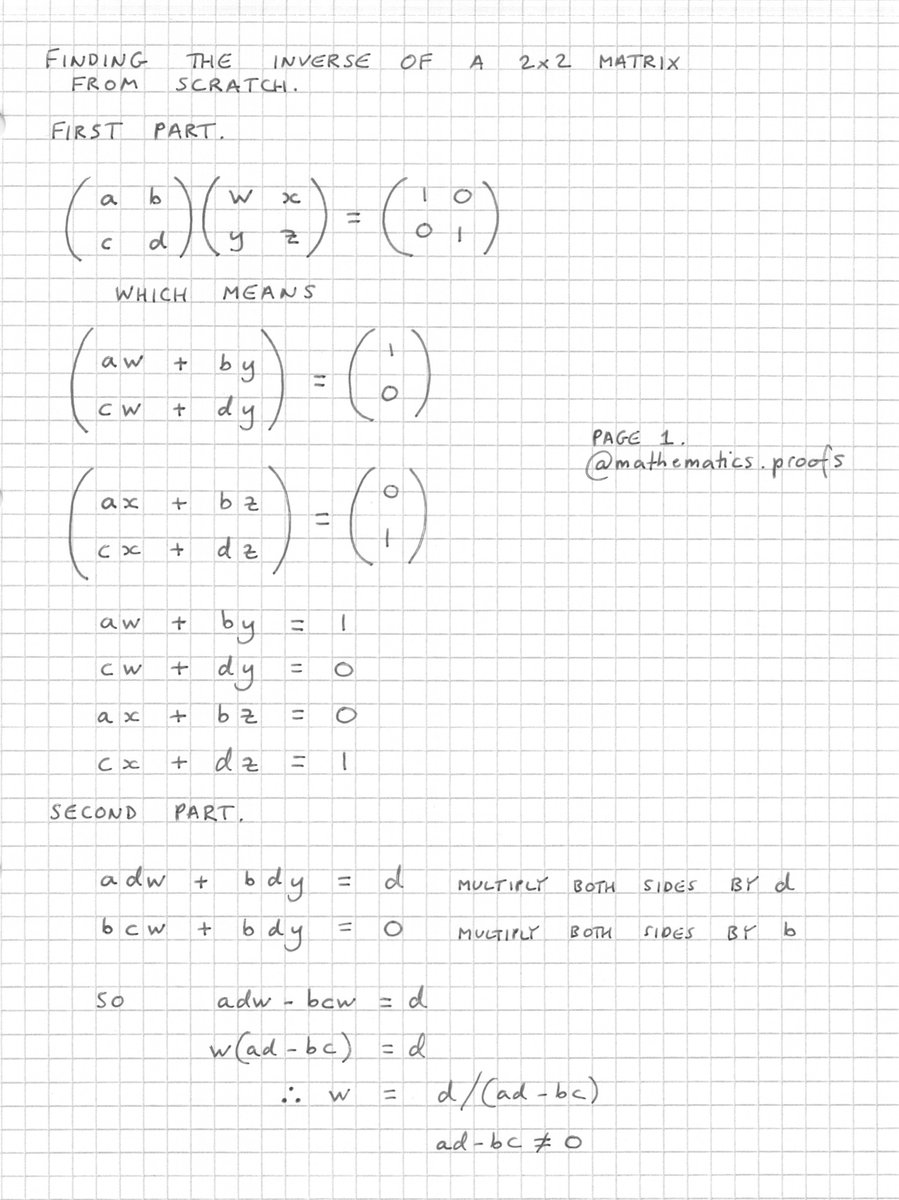 FINDING THE INVERSE OF A 2×2 MATRIX
FROM SCRATCH.
FIRST PART.
( a b ) ( w x ) = ( 1 0 )
( c d ) ( y z ) ( 0 1 )
WHICH MEANS
( aw + by ) = ( 1 )
( cw + dy ) ( 0 )
PAGE 1.
@mathematics.proofs
( ax + bz ) = ( 0 )
( cx + dz ) ( 1 )
aw + by = 1
cw + dy = 0
ax + bz = 0
cx + dz = 1
SECOND PART.
adw + bdy = d MULTIPLY BOTH SIDES BY d
bcw + bdy = 0 MULTIPLY BOTH SIDES BY b
SO adw - bcw = d
w(ad - bc) = d
∴ w = d/(ad - bc)
ad - bc ≠ 0